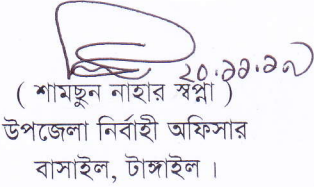 ২০.১১.১৭
( শামছুন নাহার স্বপ্না )
উপজেলা নির্বাহী অফিসার
বাসাইল, টাঙ্গাইল ।